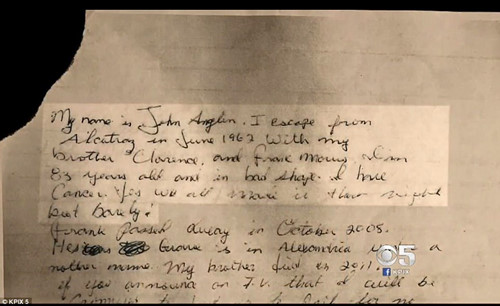 My name is John Anglin. I escape from
Alcatraz in June 1962 With my
brother Clarence, and Frank Morris. I'm
83 years old and in bad shape. I have
Cancer. Yes we all made it that night
but barely!
Frank passed away in October 2008.
His Grave is in Alexandria under a
nother name. My brother died in 2011.
if you announce on T.V. that I will be
to jail for
5
© KPIX 5
© KPIX 5